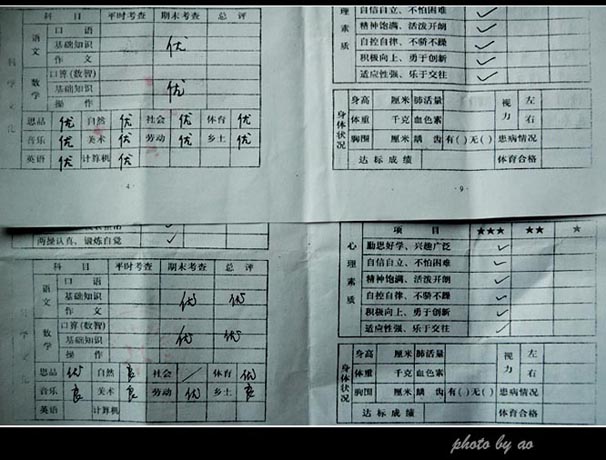 科 目 平时考查 期末考查 总 评
语文 口 语
基础知识 优
作 文
数学 口算(数智)
基础知识 优
操 作
思品 优 自然 优 社会 优 体育 优
音乐 优 美术 优 劳动 优 乡土 优
英语 优 计算机 优
· 4 ·
心理素质
自信自立、不怕困难 ✓
精神饱满、活泼开朗 ✓
自控自律、不骄不躁 ✓
积极向上、勇于创新 ✓
适应性强、乐于交往 ✓
身体状况 身高 厘米 肺活量 视力 左
体重 千克 血色素 右
胸围 厘米 龋 齿 有( )无( ) 患病情况
达 标 成 绩 体育合格
· 9 ·
两操认真、锻炼自觉 ✓
科 目 平时考查 期末考查 总 评
语文 口 语
基础知识 优 优
作 文
数学 口算(数智)
基础知识 优 优
操 作
思品 优 自然 良 社会 / 体育 优
音乐 良 美术 良 劳动 优 乡土 良
英语 计算机
心理素质 项 目 ★★★ ★★ ★
勤思好学、兴趣广泛 ✓
自信自立、不怕困难 ✓
精神饱满、活泼开朗 ✓
自控自律、不骄不躁 ✓
积极向上、勇于创新 ✓
适应性强、乐于交往 ✓
身体状况 身高 厘米 肺活量 视力 左
体重 千克 血色素 右
胸围 厘米 龋 齿 有( )无( ) 患病情况
达 标 成 绩 体育合格
photo by ao